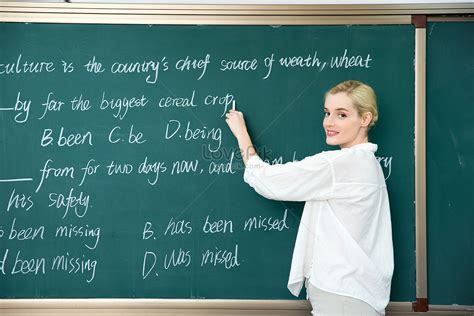 culture is the country's chief source of weath, wheat
by far the biggest cereal crop
B.been C.be D.being
from for two days now, and
his safety.
been missing B. has been missed
been missing D. was missed